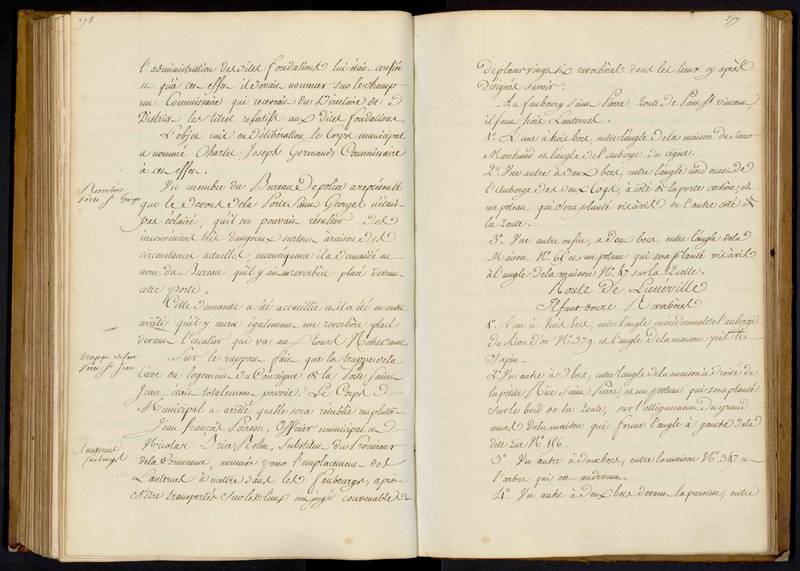 278
l'administration desdites fondations lui était confiée
et qu'à cet effet il devait nommer sur le champ
un Commissaire qui recevrait du Directoire de
District les titres relatifs aux dites fondations.
L'objet mis en délibération le Corps municipal
a nommé Charles Joseph Germain Commissaire
à cet effet.
Reverbère
Porte St George
Un membre du Bureau de police a représenté
que le devant de la Porte Saint Georges n'était
pas éclairé, qu'il en pouvait résulter des
inconvéniens très dangereux surtout à raison des
circonstances actuelles, en conséquence il a demandé au
nom du Bureau qu'il y ait un reverbère placé devant
cette porte.
Cette demande a été accueillie et il a été en outre
arrêté qu'il y aura également un reverbère placé
devant l'escalier qui va au
trappe de la
Porte St Jean
Sur le rapport fait que la trappe de la
Cave au logement du Consigne de la Porte Saint
Jean était totalement pourrie. Le Corps
Municipal a arrêté qu'elle sera rétablie au plutôt
Lanternes
faubourgs
Jean François Poirson, Officier municipal et
Nicolas Substitut du Procureur
de la Commune, nommés pour l'emplacement des
Lanternes à mettre dans les Faubourgs, après
s'être transportés sur les lieux ont jugé convenable
279
de placer vingt six reverbères dans les lieux cy après
désignés savoir:
Au faubourg Saint Pierre, route de
il faut trois Lanternes.
1°. L'une à trois becs, entre l'angle de la maison du Sieur
Marchand et l'angle de l'auberge du cigne.
2°. Une autre à deux becs, entre l'angle nord ouest de
l'Auberge des deux Loys, à côté de la porte cochère, et
un poteau qui sera planté vis à vis de l'autre côté de
la route.
3°. Une autre enfin, à deux becs, entre l'angle de la
Maison N°. 61 et un poteau qui sera planté vis à vis
à l'angle de la maison N°. 47 sur la ruelle.
Route de Lunéville
Il faut douze Reverbères
1°. Un à trois becs, entre l'angle méridional de l'auberge
du Lion d'Or N°. 379 et l'angle de la maison
Sapin.
2°. Un autre à deux becs, entre l'angle de la maison à droite de
la petite Rüe Saint Pierre, et un poteau qui sera planté
Sur le bord de la route, sur l'allignement du grand
mur de la maison qui forme l'angle à gauche de la
dite rue N°. 116.
3°. Un autre à deux becs, entre la maison N°. 347 et
l'arbre qui est au devant.
4°. Un autre à deux becs devant la paroisse, entre